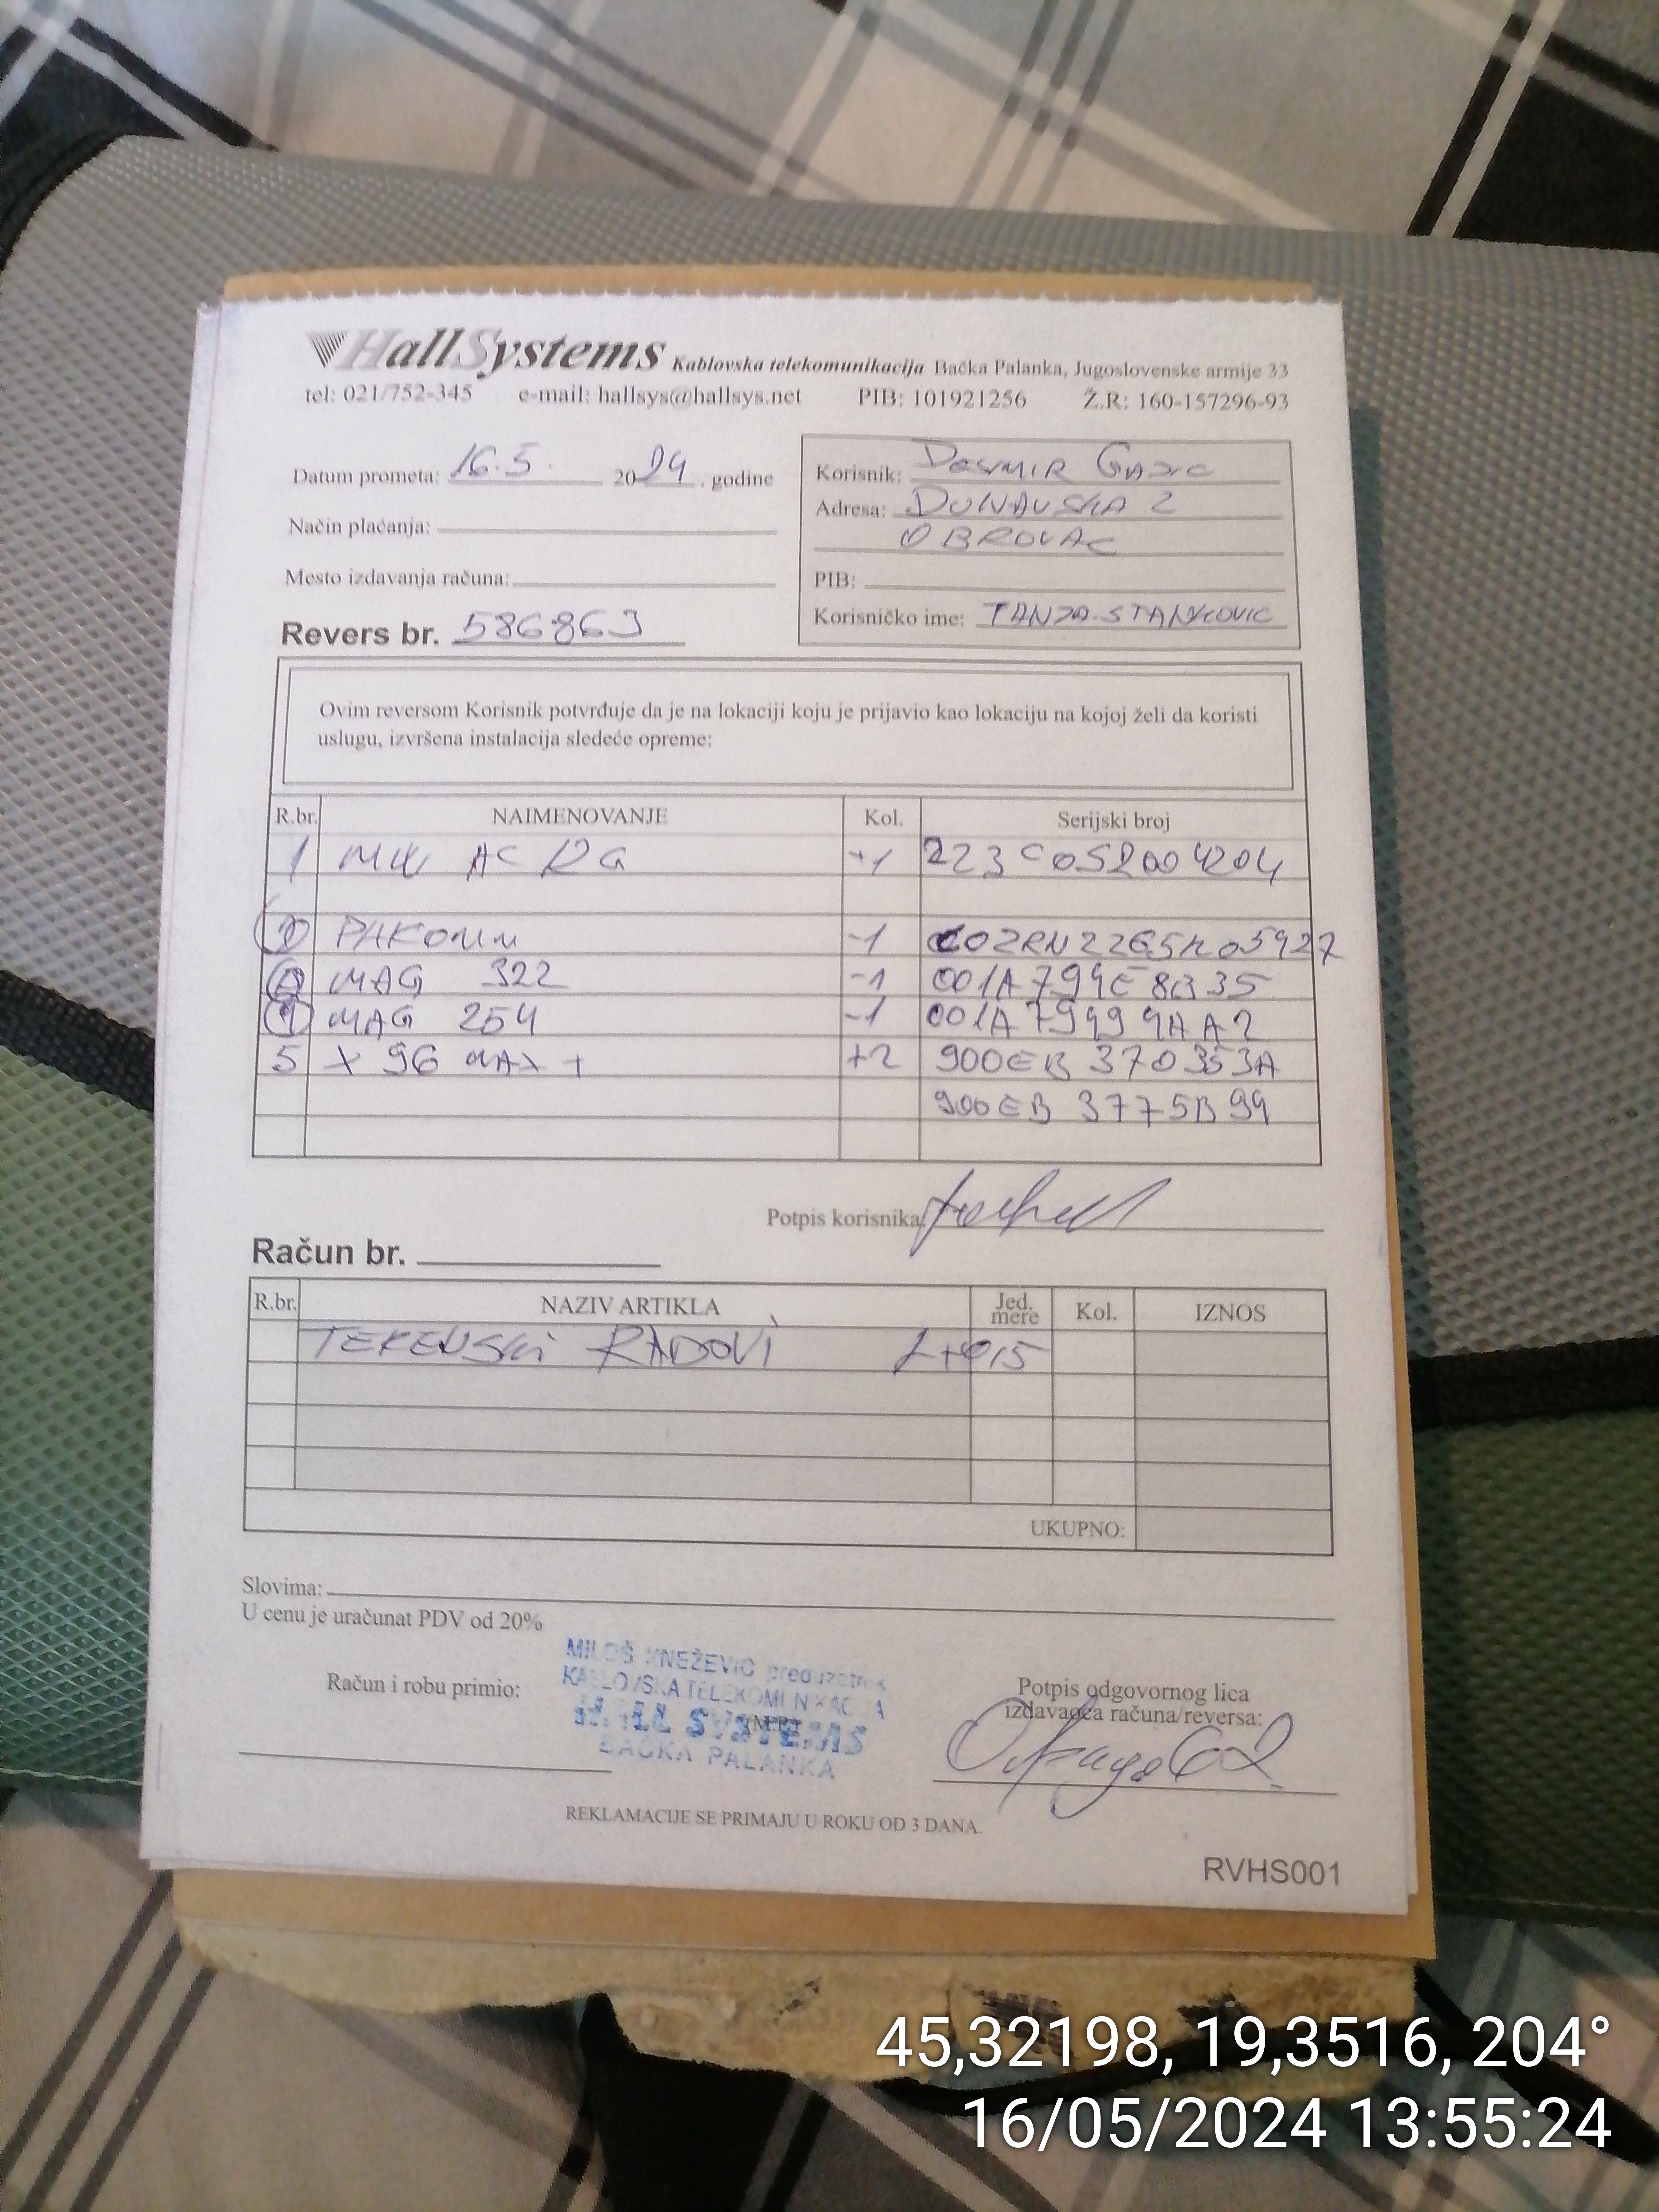 HallSystems Kablovska telekomunikacija Bačka Palanka, Jugoslovenske armije 33
tel: 021/752-345 e-mail: hallsys@hallsys.net PIB: 101921256 Ž.R: 160-157296-93
Datum prometa: 16.5. 2024. godine
Način plaćanja:
Mesto izdavanja računa:
Revers br. 586863
Korisnik:
Adresa: DUNAVSKA 2
OBROVAC
PIB:
Korisničko ime: TANJA.STANKOVIC
Ovim reversom Korisnik potvrđuje da je na lokaciji koju je prijavio kao lokaciju na kojoj želi da koristi
uslugu, izvršena instalacija sledeće opreme:
R.br. NAIMENOVANJE Kol. Serijski broj
1 AC +1 223C052004204
-1
MAG 322 -1 001A794E8B35
MAG 254 -1 001A79499AA2
5 X 96 MAX + +2 900EB370353A
900EB3775B99
Potpis korisnika:
Račun br.
R.br. NAZIV ARTIKLA Jed. mere Kol. IZNOS
TERENSKI RADOVI
UKUPNO:
Slovima:
U cenu je uračunat PDV od 20%
Račun i robu primio:
MILOŠ KNEŽEVIĆ preduzetnik
KABLOVSKA TELEKOMUNIKACIJA
HALL SYSTEMS
BAČKA PALANKA
Potpis odgovornog lica
izdavaoca računa/reversa:
REKLAMACIJE SE PRIMAJU U ROKU OD 3 DANA.
RVHS001
45,32198, 19,3516, 204°
16/05/2024 13:55:24